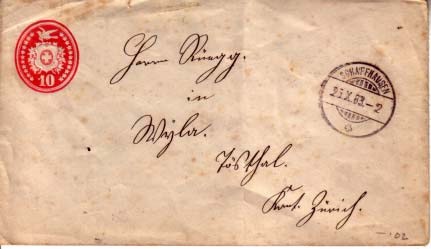 10
Herrn Rüegg.
in
Wyla.
Tössthal.
Kant. Zürich.
SCHAFFHAUSEN
25.X.83.-2